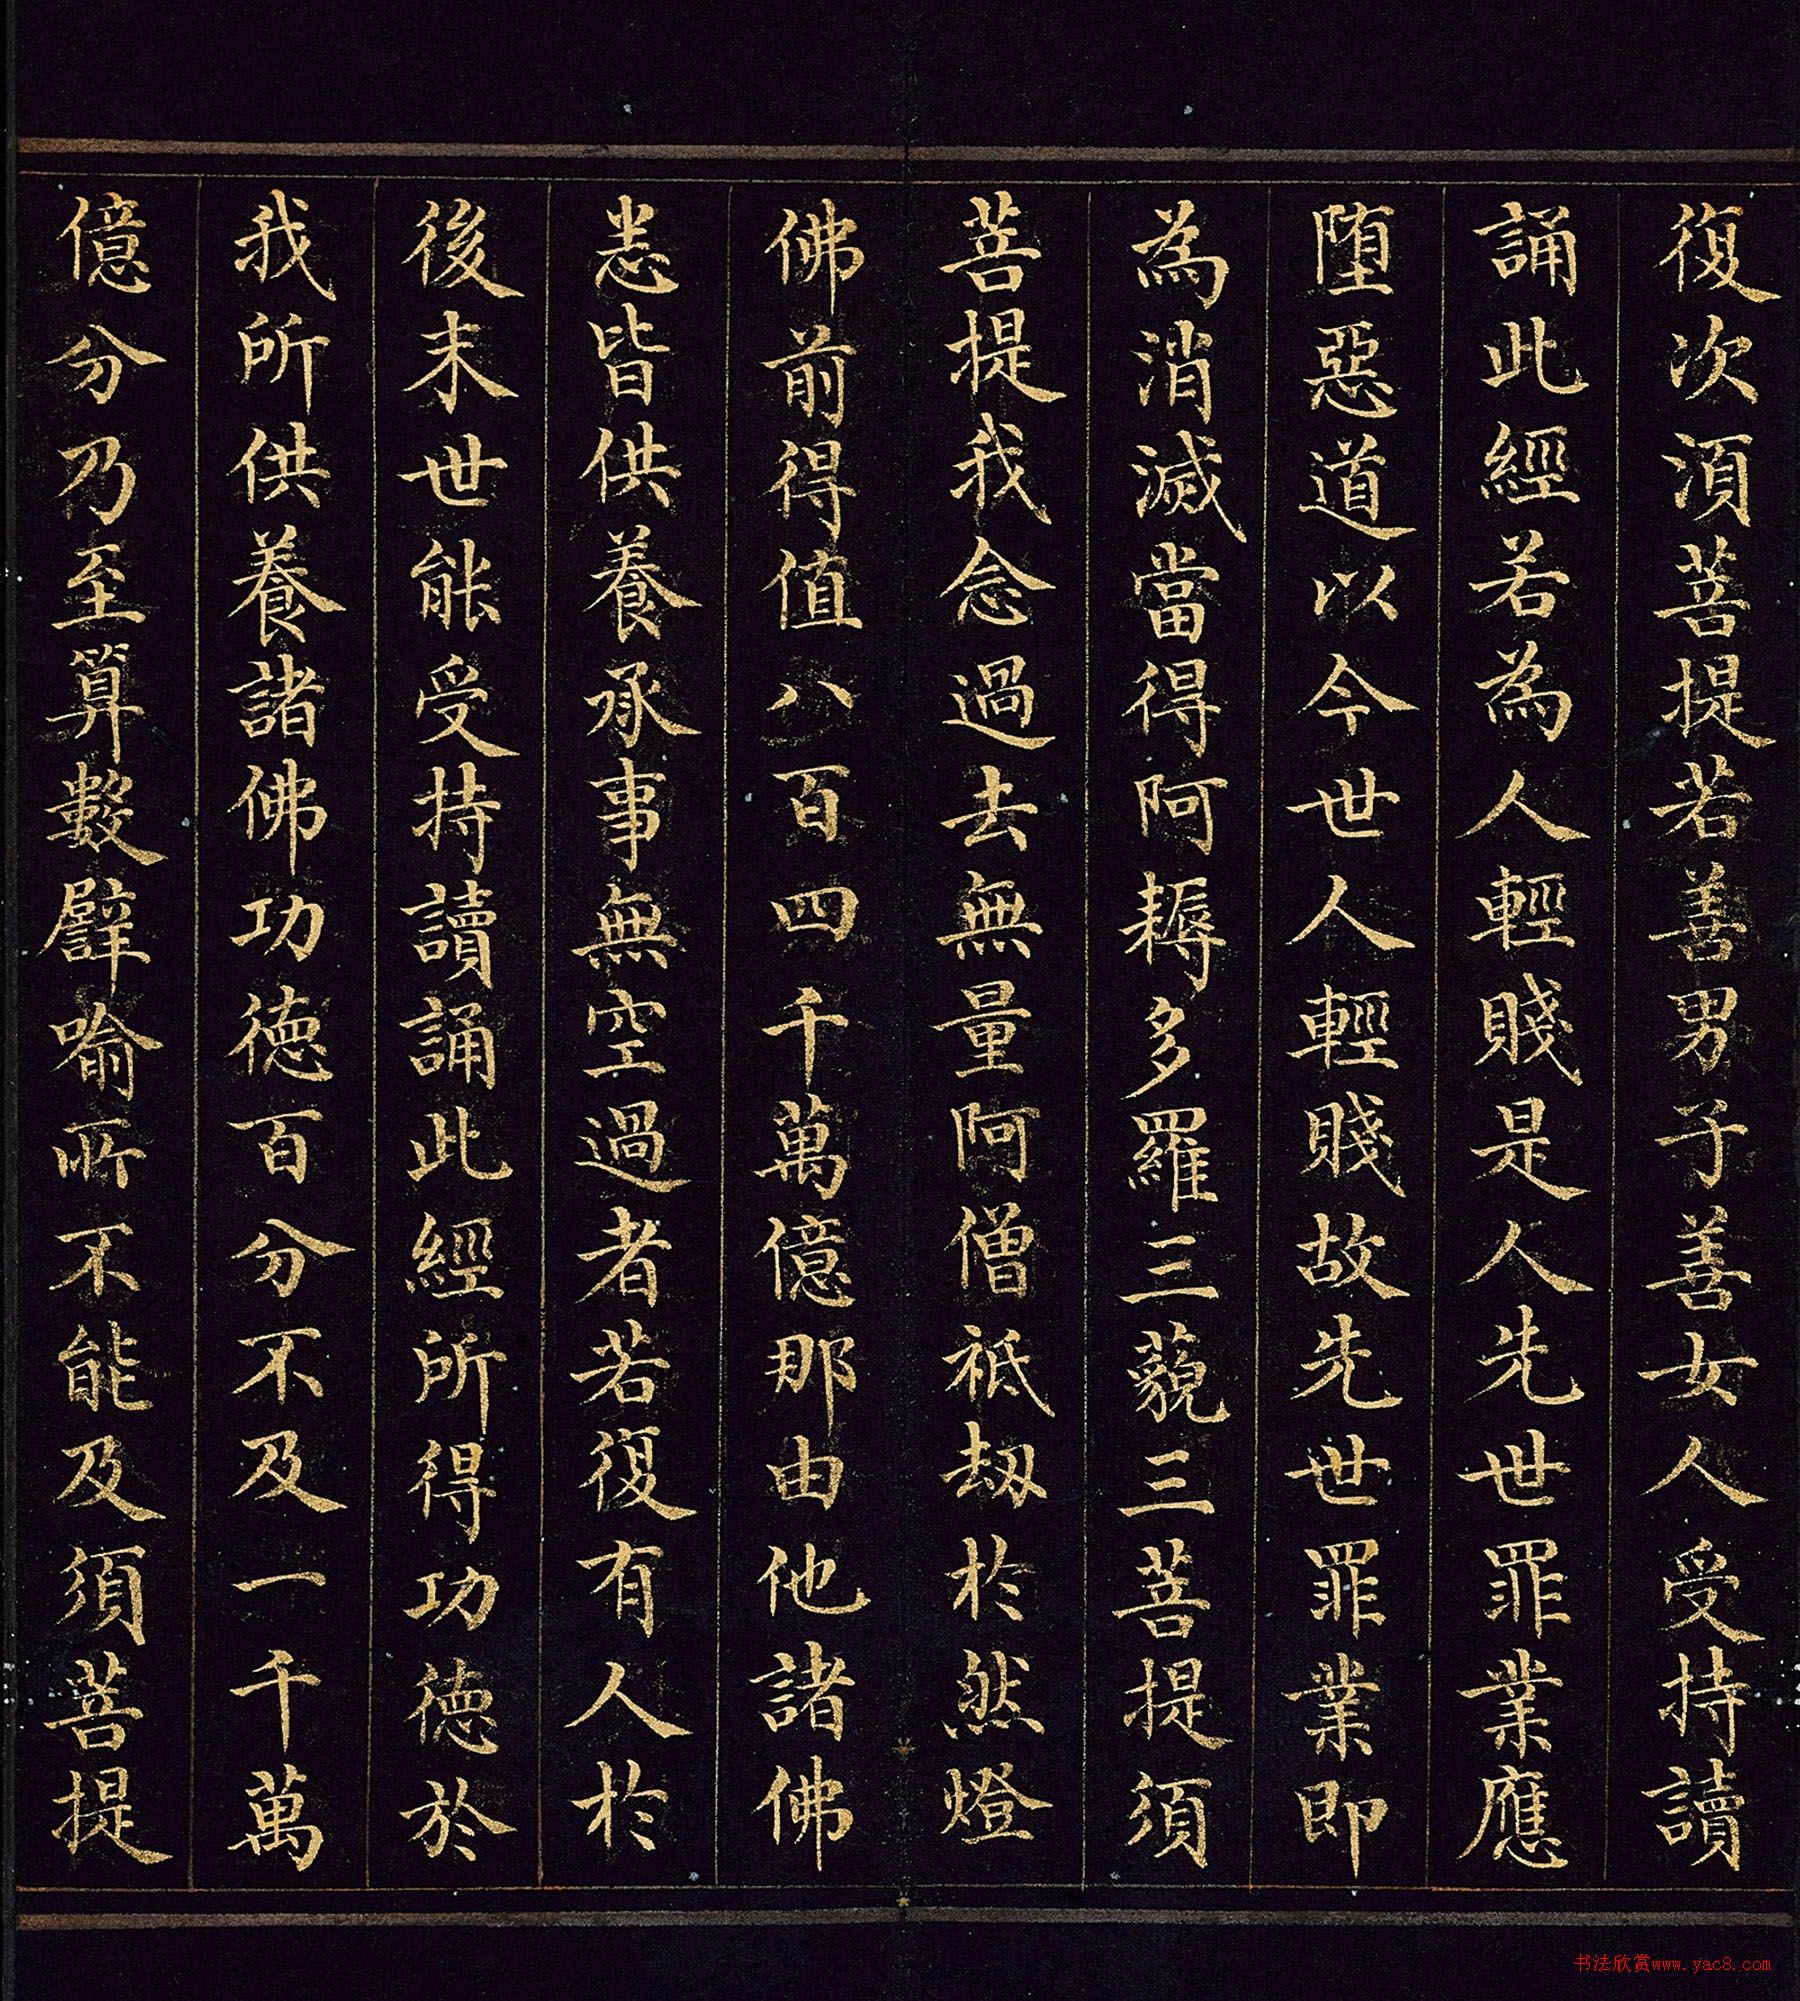 復次須菩提若善男子善女人受持讀
誦此經若為人輕賤是人先世罪業應
墮惡道以今世人輕賤故先世罪業即
為消滅當得阿耨多羅三藐三菩提須
菩提我念過去無量阿僧祇劫於然燈
佛前得值八百四千萬億那由他諸佛
悉皆供養承事無空過者若復有人於
後末世能受持讀誦此經所得功德於
我所供養諸佛功德百分不及一千萬
億分乃至算數譬喻所不能及須菩提
书法欣赏www.yac8.com